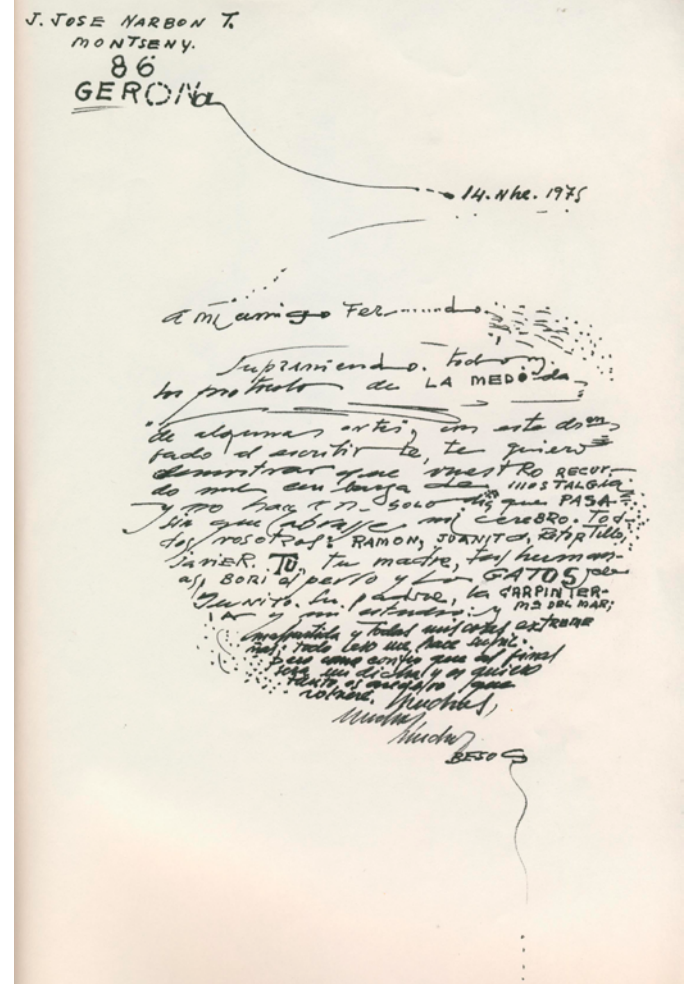 J. JOSE NARBON T.
MONTSENY.
86
GERONa
14. Nbe. 1975
a mi amigo Fernando
Suprimiendo. todo
los protocolo de LA MEDO da
de algunas artes, con este
fado al escribir te, te quiero
demostrar que vuestRO RECUER-
do me de NOSTALGIA
y no hay solo dia que PASA
sin que abrasse mi cereBRO. Tod-
dos vosotros: RAMON, JUANITO, Retortillo,
JaviER. TÚ, tu madre, tus herman-
as, BORI el perro y los GATOS de
Juanito. Su padre, la CARPINTER-
y mi estudio: y Mª DEL MAR,
mi partida y todas mis cosas extreme
ñas; todo eso me hace sufrir.
pero como confio que al final
sera mi dicha y os quiero
tanto, os aseguro que
volveré. Muchos,
Muchos
Muchos
BESOS